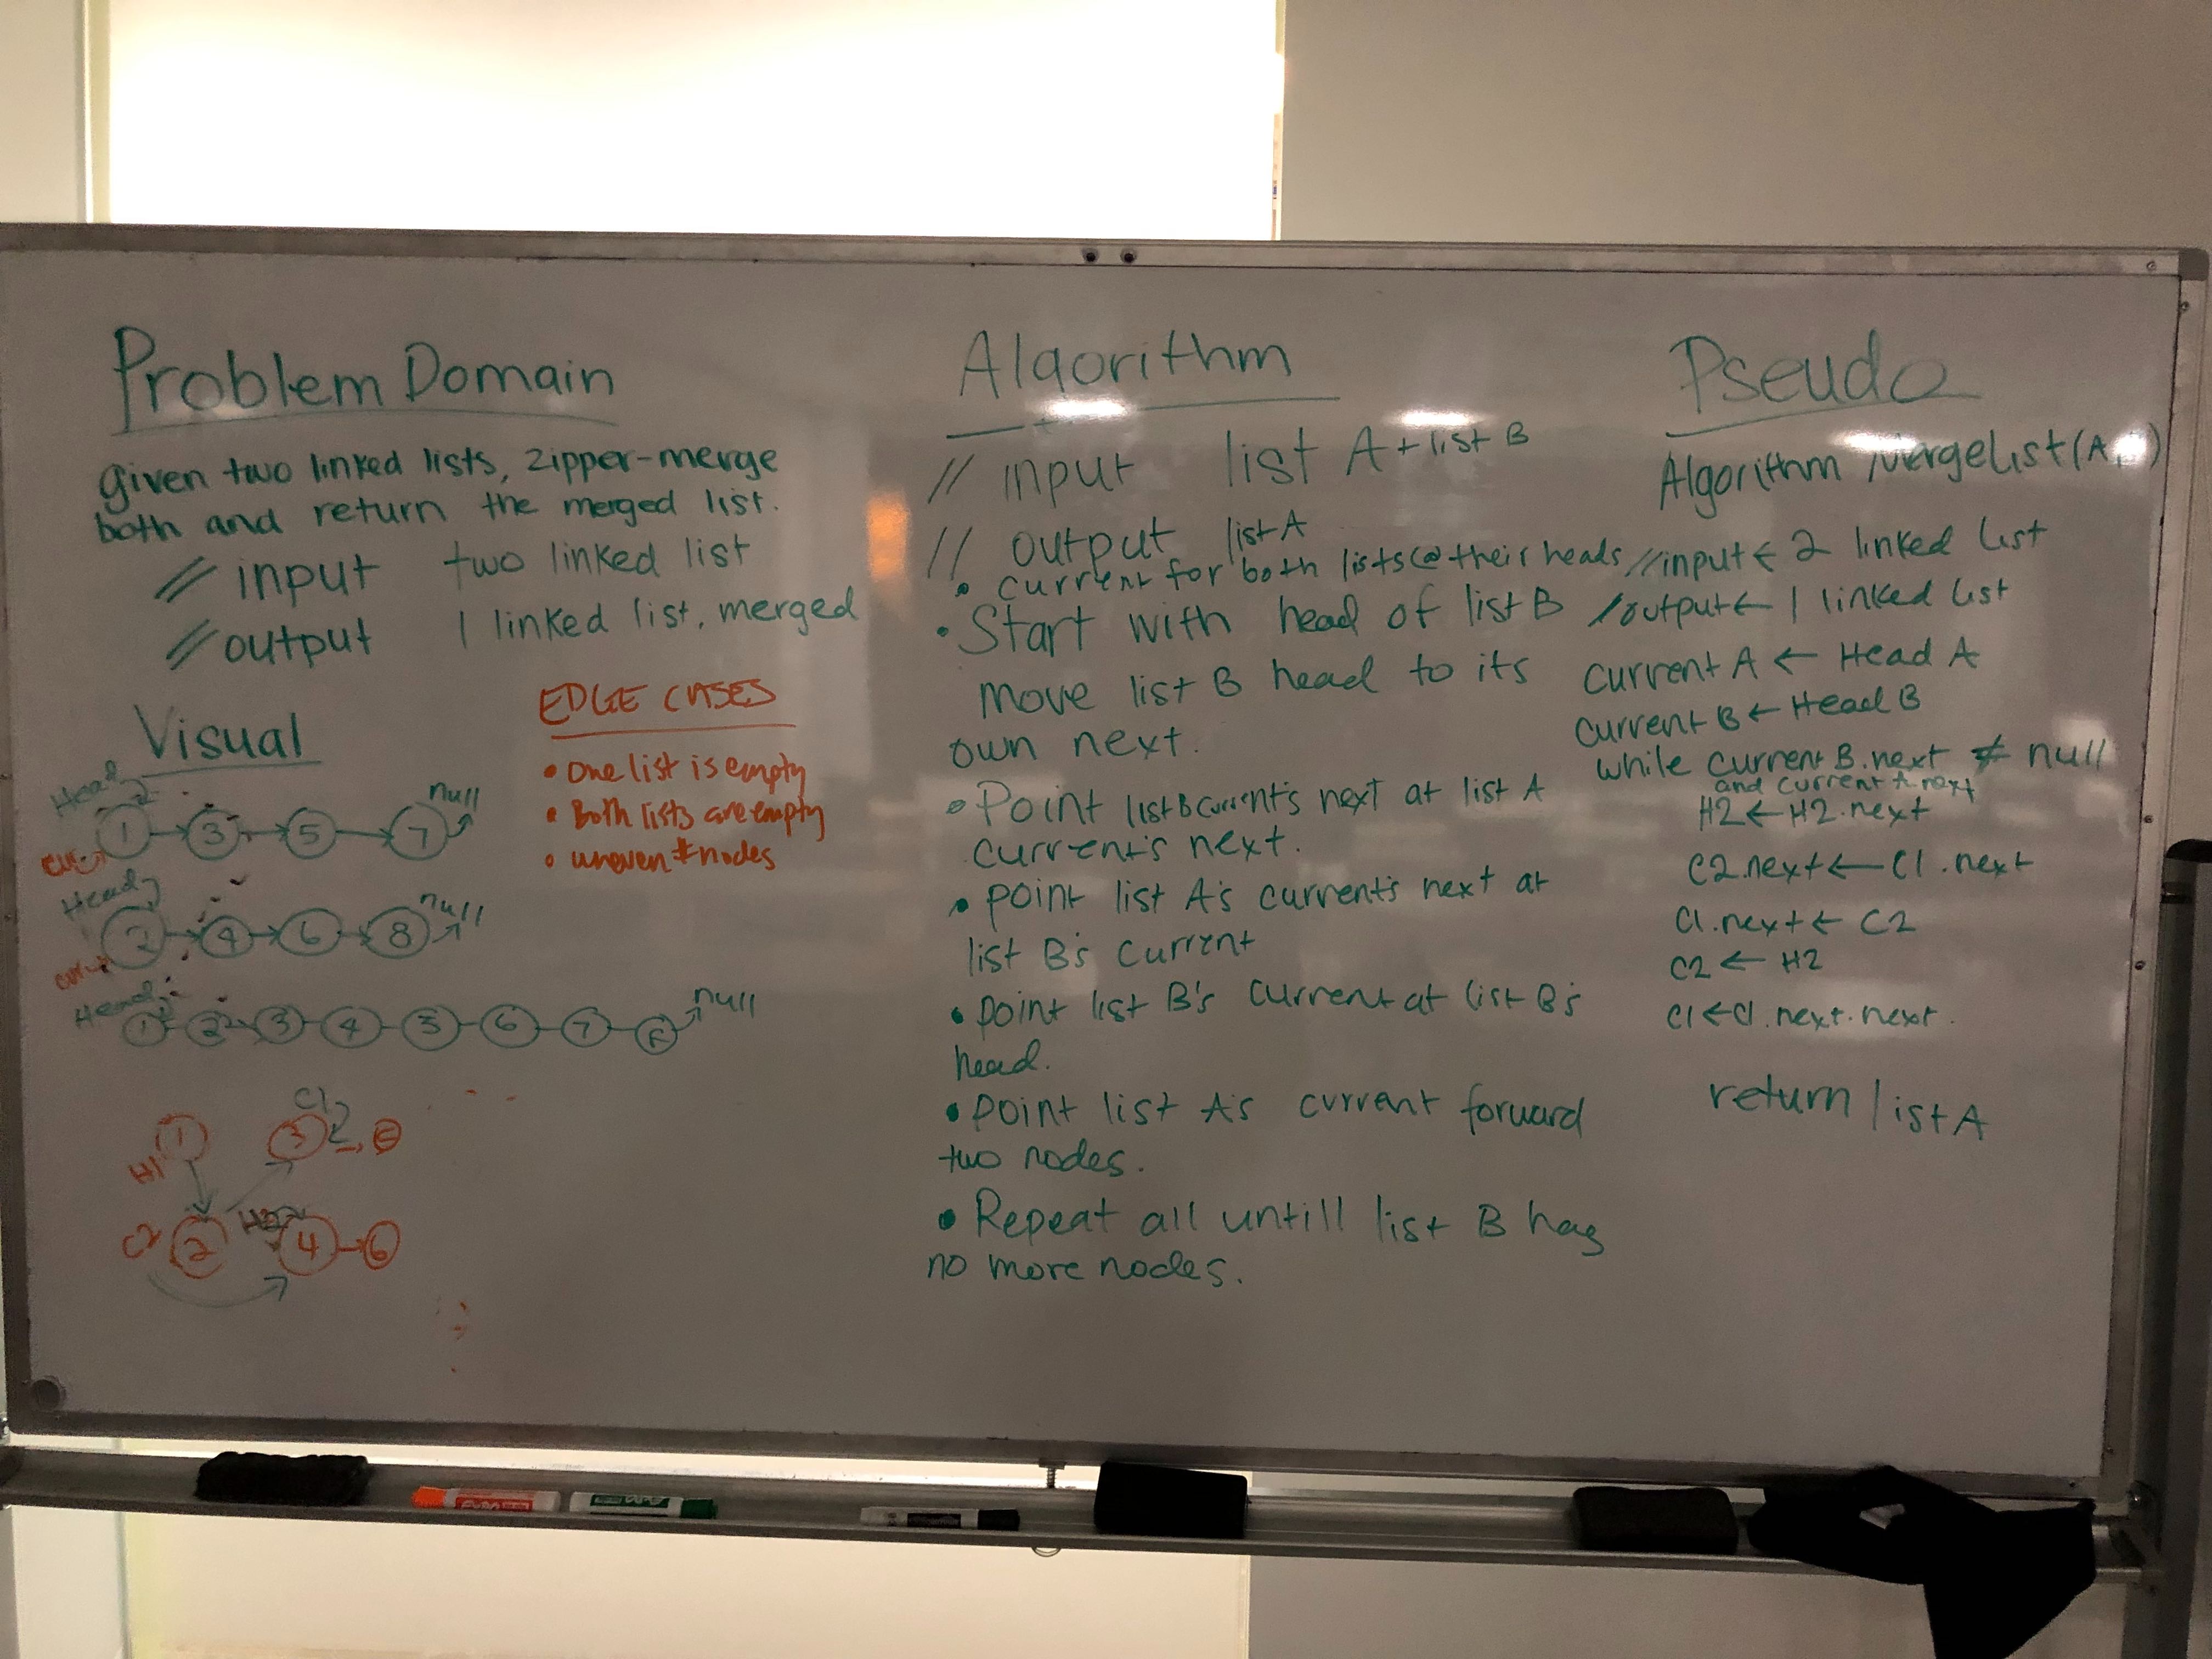 Problem Domain
given two linked lists, zipper-merge
both and return the merged list.
// input two linked list
// output 1 linked list, merged
Visual
Head
1 3 5 7 null
cur
Head
2 4 6 8 null
cur
Head
1 2 3 4 5 6 7 8 null
C1
1 3
H1
C2 2 H2 4 6
EDGE CASES
• One list is empty
• Both lists are empty
• uneven # nodes
Algorithm
// input list A + list B
// output list A
• current for both lists @ their heads
• Start with head of list B
move list B head to its
own next.
• Point list B current's next at list A
current's next.
• point list A's current's next at
list B's current
• point list B's current at list B's
head.
• Point list A's current forward
two nodes.
• Repeat all untill list B has
no more nodes.
Pseudo
Algorithm MergeList(A,B)
//input ← 2 linked list
/output ← 1 linked list
Current A ← Head A
Current B ← Head B
while current B.next ≠ null
and current A.next
H2 ← H2.next
C2.next ← C1.next
C1.next ← C2
C2 ← H2
C1 ← C1.next.next.
return listA